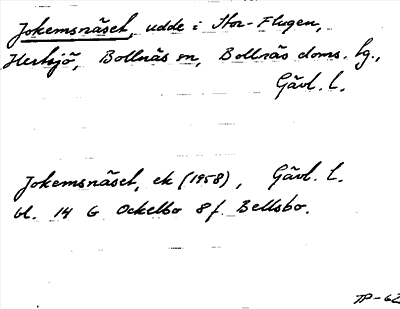 Jokemsnäset, udde i Stor-Flugen,
Hertsjö, Bollnäs sn, Bollnäs doms. lg.,
Gävl. l.
Jokemsnäset, ek (1958), Gävl. l.
bl. 14 G Ockelbo 8 f Bellsbo.
TP-62